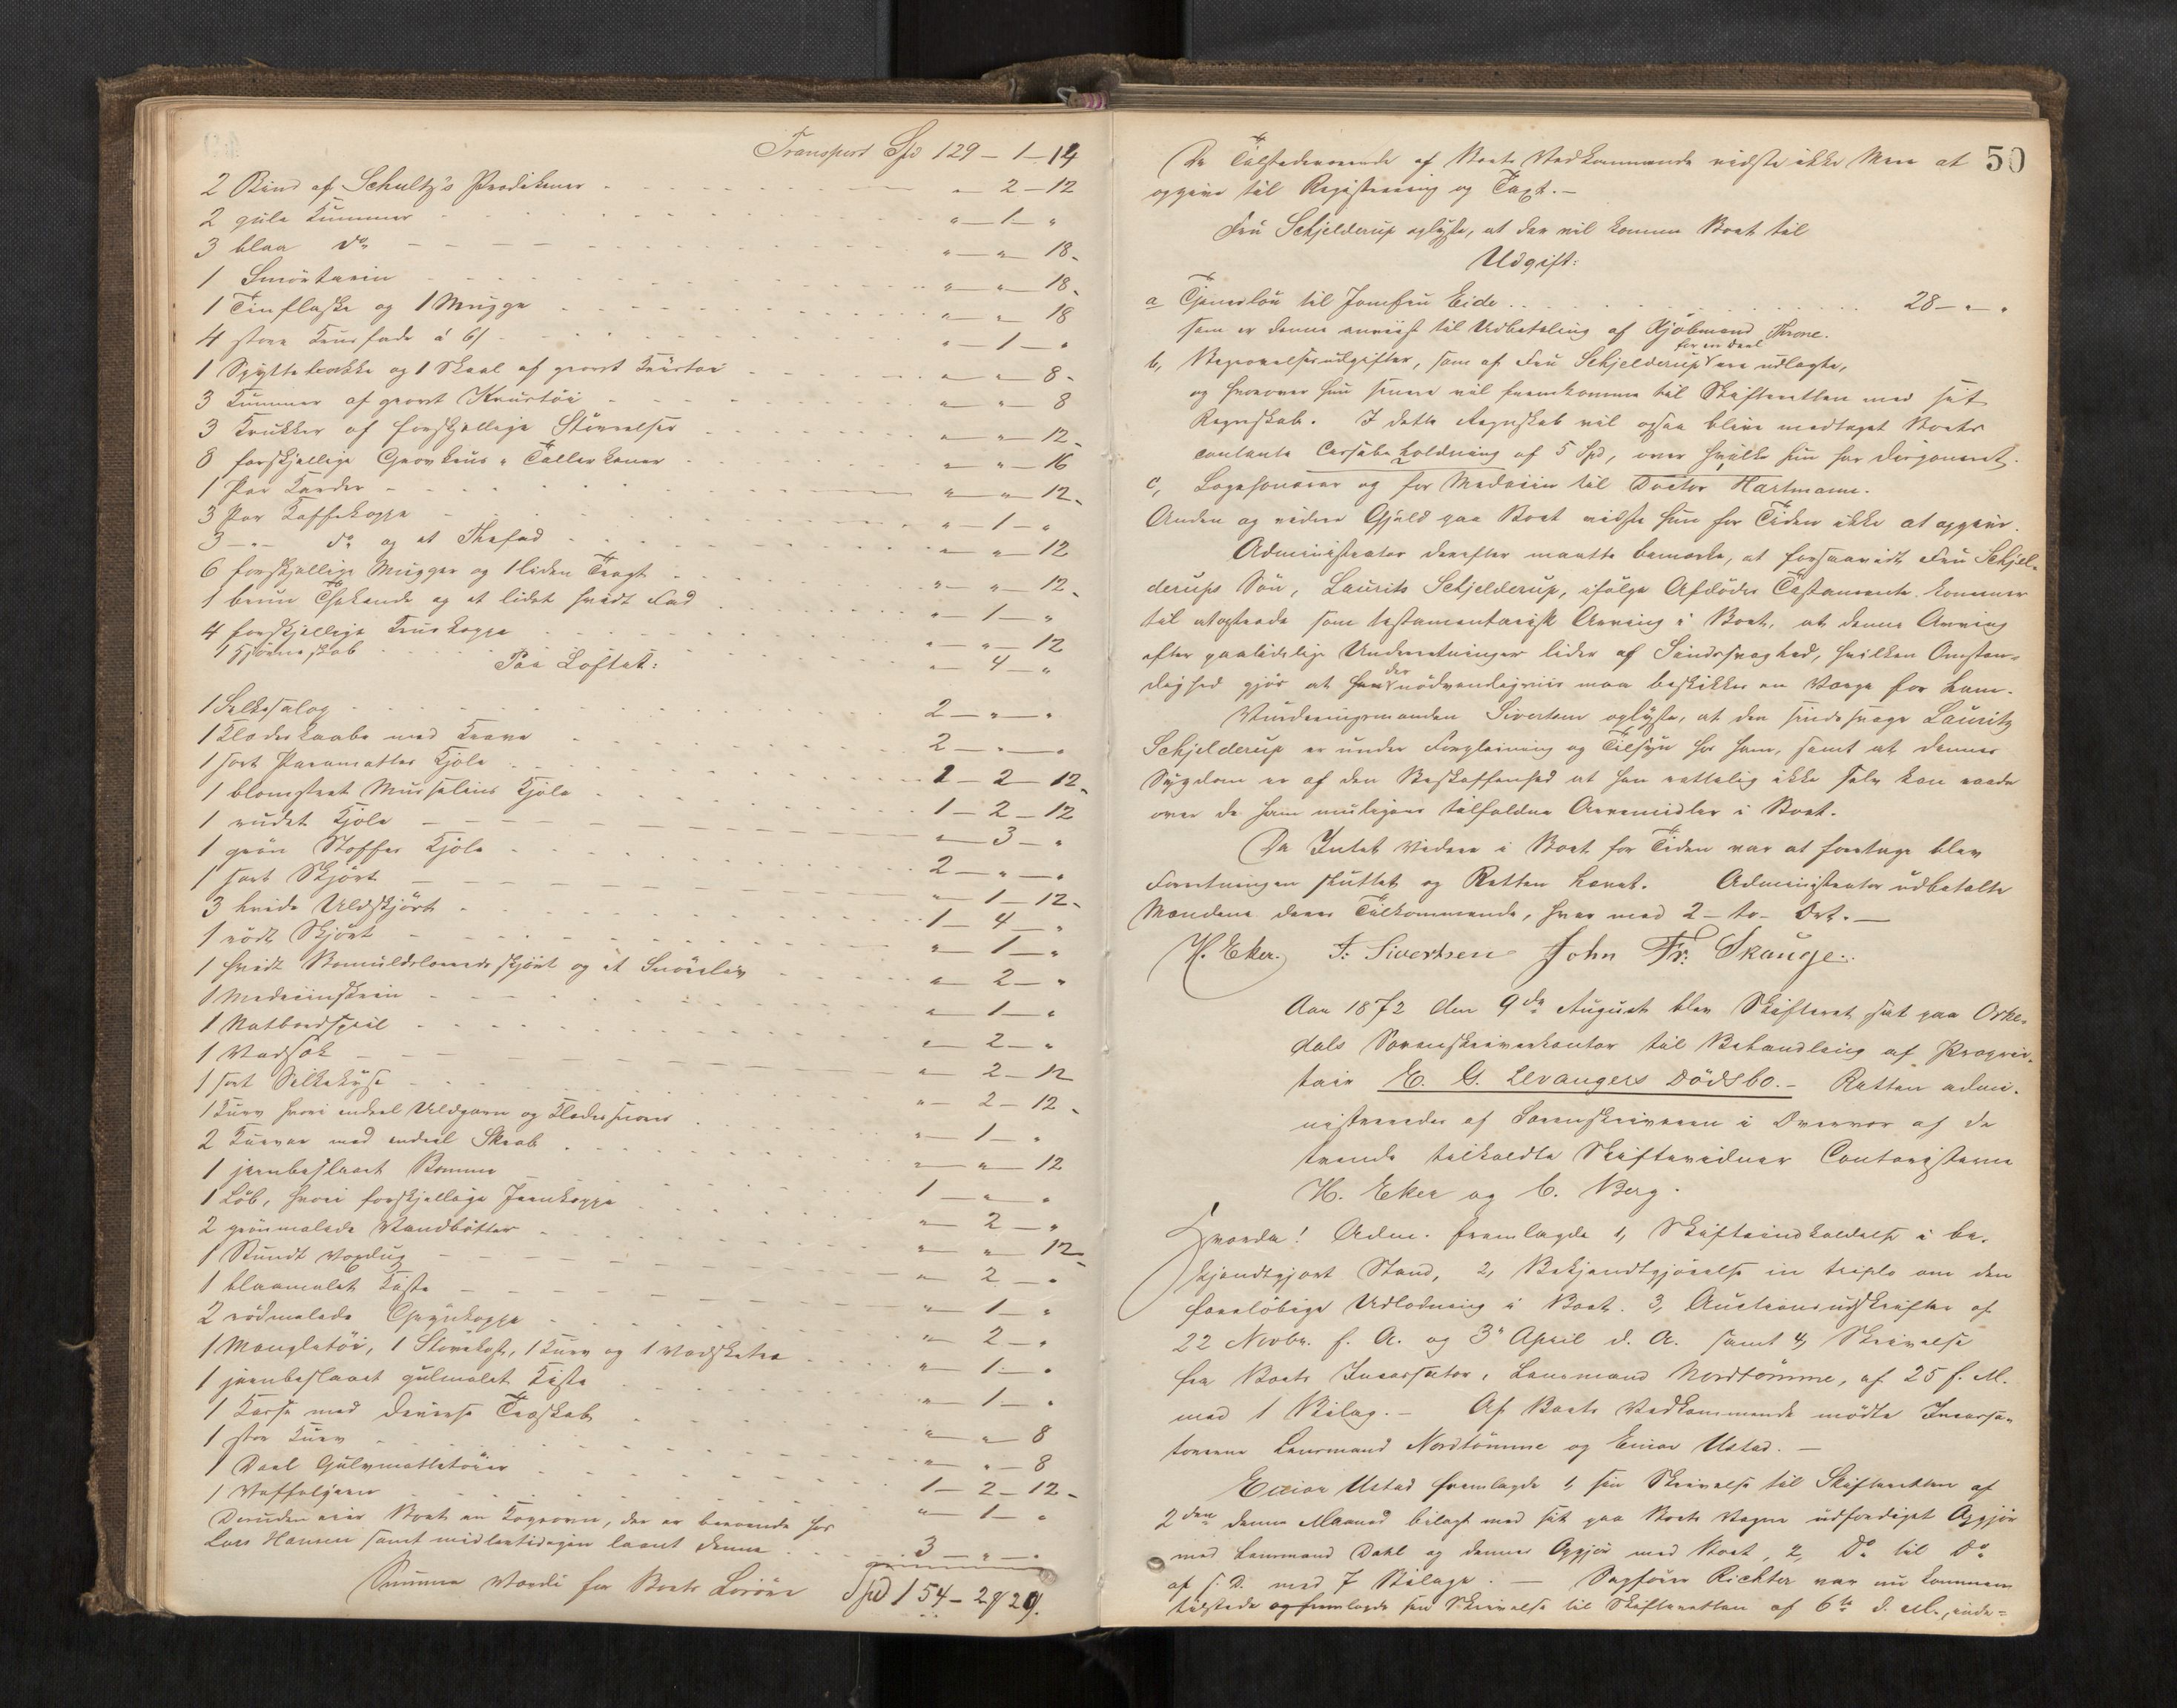 Transport Spd 129 – 1 – 14
2 Bind af Schultz's Prædikener " – 2 – 12
2 gule Kummer " – 1 – "
3 blaa do " – " – 18
1 Smörterin " – " – 18
1 Tinflaske og 1 Mugge " – " – 18
4 store Kruusfade á 6 ß " – 1 – "
1 Spyttebakke og 1 Skaal af grovt Kruustöi " – " – 8
3 Kummer af grovt Kruustöi " – " – 8
3 Krukker af forskjellige Störrelser " – " – 12
8 forskjellige Grovkruus Tallerkener " – " – 16
1 Par Karder " – " – 12
3 Par Kaffekoppe " – 1 – "
3 – " – do og et Thefad " – " – 12
6 forskjellige Mugger og 1 liden Tragt " – " – 12
1 bruun Thekande og et lidet hvidt Fad " – 1 – "
4 forskjellige Kruuskoppe " – " – 12
1 Hjörneskab " – 4 – "
Paa Loftet:
1 Felbesalog 2 – " – "
1 Klædeskaabe med Krave 2 – " – "
1 sort Paramattes Kjole 1 – 2 – 12
1 blomstret Musselins Kjole 1 – 2 – 12
1 rudet Kjole " – 3 – "
1 grön Stoffes Kjole 2 – " – "
1 sort Skjört " – 1 – 12
3 hvide Uldskjört 1 – 4 – "
1 rödt Skjört " – 1 – "
1 hvidt Bomuldslærreds skjört og et Snöreliv " – 2 – "
1 Medicinskrin " – 1 – "
1 Natbordspeil " – 2 – "
1 Vadsæk " – 2 – 12
1 sort Silkekyse " – 2 – 12
1 Kurv hvori endeel Uldgarn og Klædessnorer " – 1 – "
2 Kurver med endeel Skrab " – " – 12
1 jernbeslaaet Bomme 1 – " – "
1 Löb, hvori forskjellige Jernkoppe " – 2 – "
2 grönmalede Vandbötter " – " – 12
1 Rundt Voxdug " – 2 – "
1 blaamalet Kiste " – 1 – "
2 rödmalede Grynkoppe " – 2 – "
1 Mangletöi, 1 Stövekost, 1 Kurv og 1 Vadskatre " – 1 – "
1 jernbeslaaet gulmalet Kiste " – 1 – "
1 Kasse med diverse Træskab " – " – 8
1 stor Kurv " – " – 8
1 Deel Gulvmattetöier 1 – 2 – 12
1 Vaffeljern " – 1 – "
Desuden eier Boet en Kogeovn, der er beroende hos
Lars Hansen samt midlertidigen laant denne 3 – " – "
Summa Værdi for Boets Lösöre Spd 154 – 2 ß 20 ß.
50
De Tilstedeværende af Boets Vedkommende vidste ikke Mere at
opgive til Registrering og Taxt. –
Fru Schjelderup oplyste, at der vil komme Boet til
Udgift:
a Tjenerlön til Jomfru Eide 28 – " – "
som er denne anviist til Udbetaling af Kjöbmand Throne.
b, Begravelsesudgifter, som af Fru Schjelderup for en Deel ere udlagte,
og hvorover hun senere vil fremkomme til Skifteretten med sit
Regnskab. I dette Regnskab vil ogsaa blive medtaget Boets
contante Cassabeholdning af 5 Spd, over hvilke hun har disponeret.
c, Lægehonorar og for Medicin til Doctor Hartmann.
Anden og videre Gjæld paa Boet vidste hun for Tiden ikke at opgive.
Administrator derefter maatte bemærke, at forsaavidt Fru Schjel-
derups Sön, Laurits Schjelderup, ifölge Afdödes Testamente kommer
til at optræde som testamentarisk Arving i Boet, at denne Arving
efter paalidelige Underretninger lider af Sindssvaghed, hvilken Omstæn-
dighed gjör at der nödvendigviis maa beskikkes en Værge for ham.
Vurderingsmanden Sivertsen oplyste, at den sindssvage Lauritz
Schjelderup er under Forpleining og Tilsyn hos ham, samt at dennes
Sygdom er af den Beskaffenhed at han rettelig ikke selv kan raade
over de ham muligens tilfaldne Arvemidler i Boet.
Da Intet Videre i Boet for Tiden var at foretage blev
Forretningen sluttet og Retten hævet. Administrator udbetalte
Mændene deres Tilkommende, hver med 2 – to – Ort. –
H. Eker. J. Sivertsen John Fr. Skauge.
Aar 1872 den 9de August blev Skifteret sat paa Orke-
dals Sorenskriverkontor til Behandling af Proprie-
tair E. G. Levangers Dödsbo. – Retten admi-
nistreredes af Sorenskriveren i Overvær af de
tvende tilkaldte Skiftevidner Contoristerne
H. Eker og C. Berg.
Hvorda! Adm. fremlagde 1, Skifteindkaldelse i be-
kjendtgjort Stand, 2, Bekjendtgjörelse in triplo om den
forelöbige Udlodning i Boet. 3, Auctionsudskrifter af
22 Novbr. f. A. og 3' April d. A. samt 4, Skrivelse
fra Boets Incassator, Lensmand Nordtömme, af 25 f. M.
med 1 Bilag. – Af Boets Vedkommende mödte Incassa-
torerne Lensmand Nordtömme og Einar Ustad. –
Einar Ustad fremlagde 1, sin Skrivelse til Skifteretten af
2den denne Maaned bilagt med sit paa Boets Vegne udfærdiget Opgjör
med Lensmand Dahl og dennes Opgjör med Boet, 2, Do til Do
af s. D. med 7 Bilage. – Sagförer Richter var nu kommen
tilstede og fremlagde sin Skrivelse til Skifteretten af 6te d. M., inde-